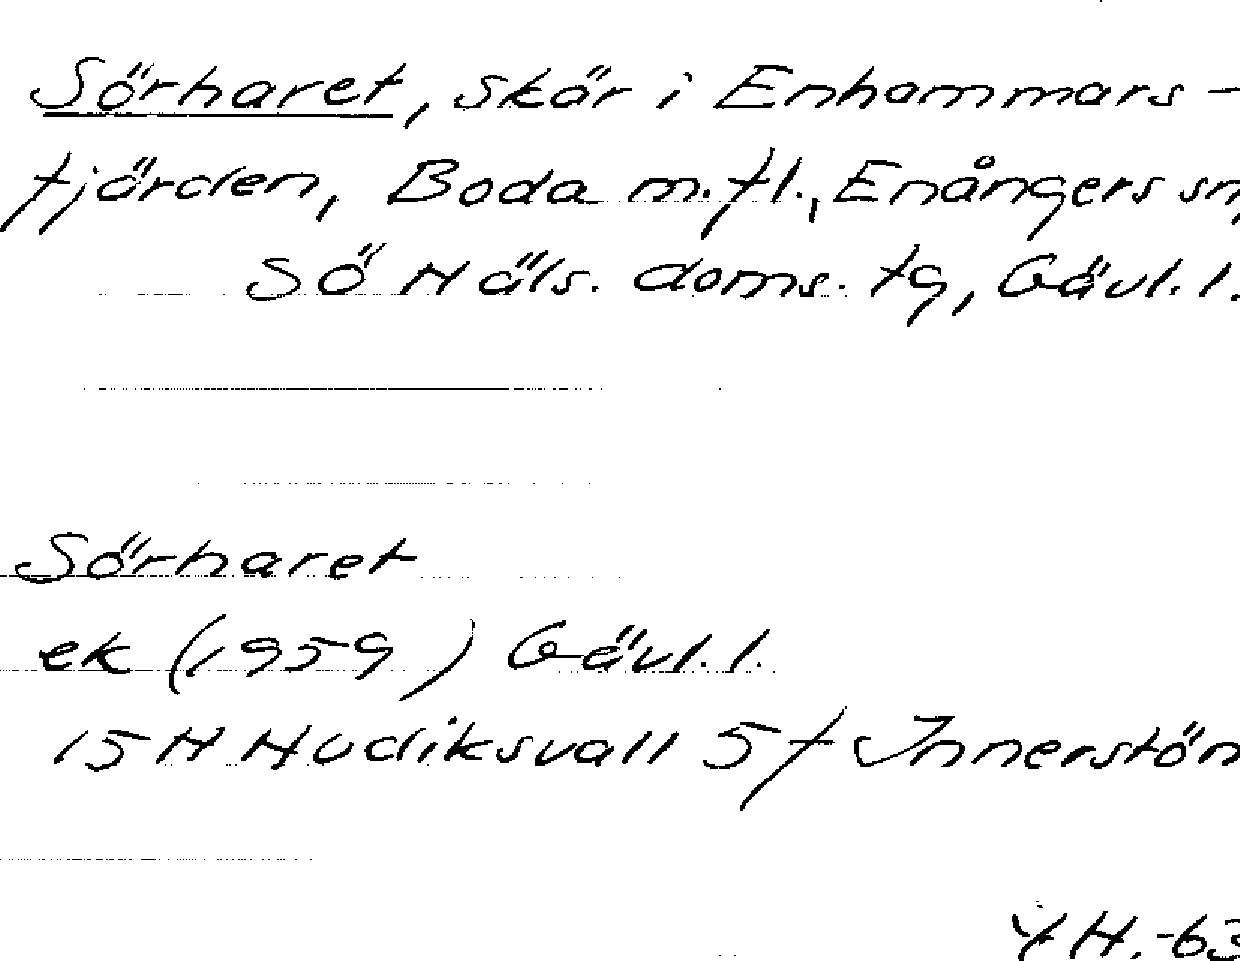 Sörharet, skär i Enhammars-
fjärden, Boda m.fl., Enångers sn,
SÖ Häls. doms. tg, Gävl.l.
Sörharet
ek (1959) Gävl.l.
15H Hudiksvall 5f Innerstön
YH.-63